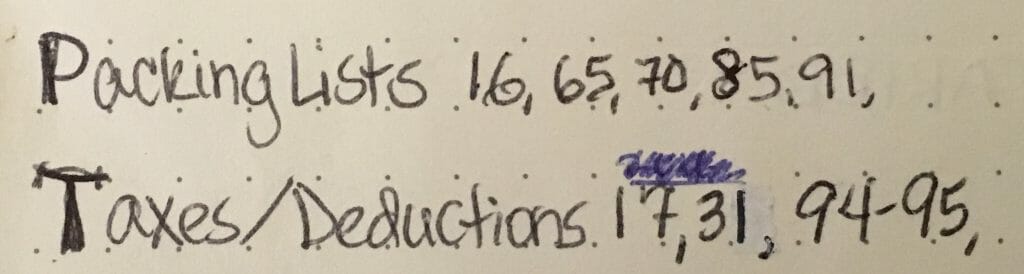 Packing Lists 16, 65, 70, 85, 91,
Taxes/Deductions 17, 31, 94-95,